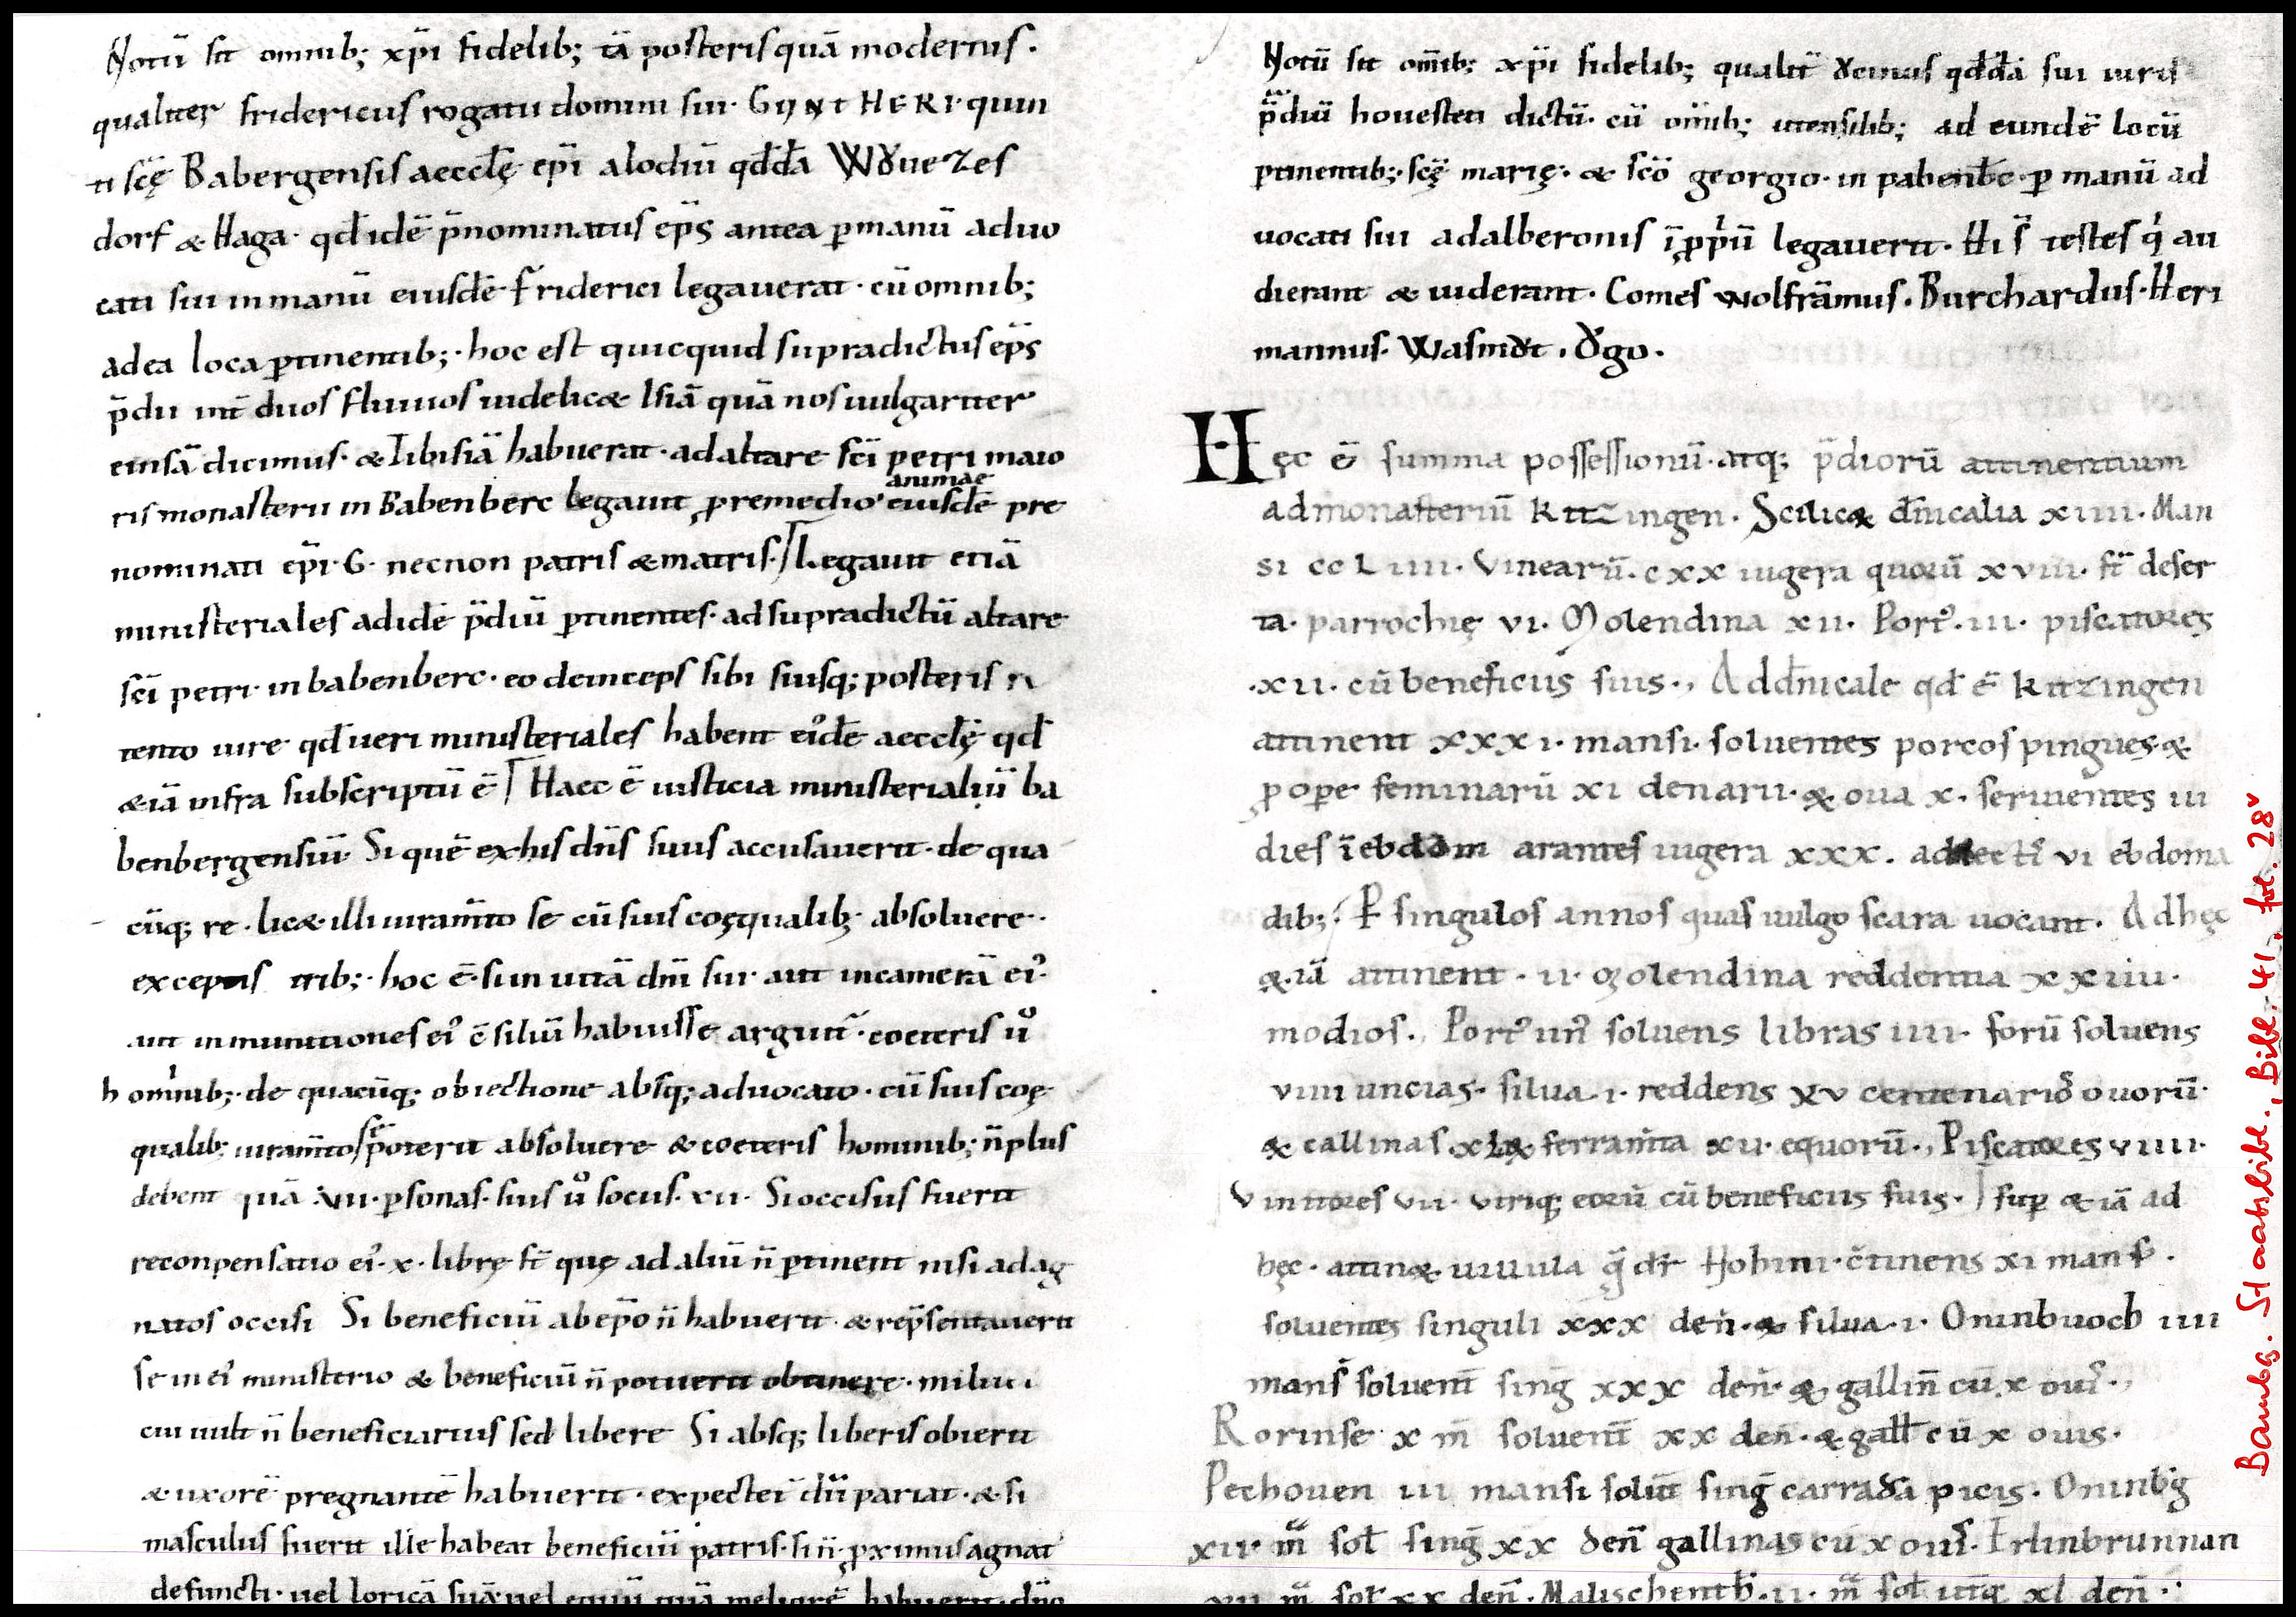 Notū sit omnib; xp̄i fidelib; tā posteris quā modernis.
qualiter fridericus rogatu domini sui· GVNTHERI· quin
ti scę̄ Babergensis aeccłę ep̄i alodiū qđđa Wͮuezes
dorf & Haga· qđ idē p̄nominatus ep̄s antea ꝑ manū aduo
cati sui in manū eiusdē friderici legauerat· cū omnib;
ad ea loca ꝑtinentib;· hoc est quicquid supradictus ep̄s
p̄dii int̄ duos fluuios uidelic& Isiā quā nos uulgariter
einsā dicimus· & Iibisiā habuerat· ad altare sc̄i petri maio
ris monasterii in Babenberc legauit ꝓ remedio animae eiusdē pre
nominati ep̄i· G· necnon patris & matris· Legauit etiā
ministeriales ad idē p̄diū ꝑtinentes· ad supradictū altare
sc̄i petri· in babenberc· eo deinceps sibi suisq; posteris re
tento iure qđ ueri ministeriales habent ei᾽dē aeccłę qđ
&iā infra subscriptū ē Haec ē iusticia ministerialiū ba
benbergensiū Si quē ex his dn̄s suus accusauerit· de qua
cūq; re· lic& illi iuram̄to se cū suis coęqualib; absoluere··
exceptis trib;· hoc ē· si in uitā dn̄i sui· aut in camerā ei᾽·
aut in munitiones ei᾽ c̄siliū habuisse arguit᷑· coeteris uͦ
hominib;· de quacūq; obiectione absq; aduocato· cū suis coę
qualib; iuram̄to se poterit absoluere & coeteris hominib; n̄ plus
debent quā ·VII· ꝑsonas· suis uͦ sociis· XII· Si occisus fuerit
reconpensatio ei᾽· x· librę st̄ quę ad aliū n̄ ꝑtinent nisi ad ag
natos occisi Si beneficiū ab ep̄o n̄ habuerit· & rep̄sentauerit
se in ei᾽ ministerio & beneficiū n̄ potuerit obtinere· milit
cui uult n̄ beneficiarius sed libere Si absq; liberis obierit
& uxorē pregnantē habuerit· expectet᷑ dū pariat· & si
masculus fuerit ille habeat beneficiū patris· si n̄ ꝓximus agnat᾽
defuncti· uel loricā suā· uel equū quā meliorē habuerit· dn̄o
Notū sit om̄ib; xp̄i fidelib; qualit̄ ɣeinus qđđā sui iuris
p̄diū houesteti dictū· cū om̄ib; utensilib; ad eundē locū
ꝑtinentib;· scę̄ marię· & scō georgio· in pabenb̄c ꝑ manū ad
uocati sui adalberonis ī ꝓpriū legauerit· Hi s̄ testes qͥ au
dierant & uiderant· Comes wolframus· Burchardus· Heri
mannus· Wasmͮt· ͮgo·
Hęc ē summa possessionū· atq; p̄diorū attinentium
ad monasteriū kitzingen· Scilic& dn̄icalia XIIII· Man
si cc L IIII· Vinearū· cxx iugera quorū xvIII· st̄ deser
ta· parrochię VI· Molendina xII· Port᾽· III· piscatores
·XII· cū beneficiis suis·, Ad dn̄icale qđ ē kitzingen
attinent xxxI· mansi· soluentes porcos pingues· &
ꝓ oꝑe feminarū xI denarii· & oua x· seruientes III
dies ī ebdom arantes iugera xxx· adiecti᾽ VI ebdoma
dib;· ꝑ singulos annos quas uulgo scara uocant· Ad hęc
&iā attinent· II· Molendina reddentia xxIIII·
modios·, Port᾽ un᾽ soluens libras IIII· forū soluens
VIII uncias· silua· I· reddens xv centenarios ouorū·
& callinas xL & ferram̄ta xII· equorū·, Piscatores VIIII·
Vinitores VII· utriq; eorū cū beneficiis suis·, suꝑ &iā ad
hęc· attin& uillula q̄ dr̄ Hohim· c̄tinens xI mans·
soluentes singuli xxx den· & silua· I· Oninbuoch IIII
mans̄ soluent̄ sing̅ xxx den̄· & gallin̄ cū x ouis·,
Rorinse x m̄ soluent̄ xx den̄· & gall̄ cū x ouis·
Pechouen III mansi solūt sing̅ carrada picis· Oninb̄g
xII· m̄ sol̄ sing̅ xx den̄ gallinas cū x ouis· Irlinbrunnan
xII m̄ sol̄ xx den̄· Malischentb̄· II· m̄ sol̄ ut̄q; xl den̄·
Bambg. Staatsbibl., Bibl. 41, fol. 28v